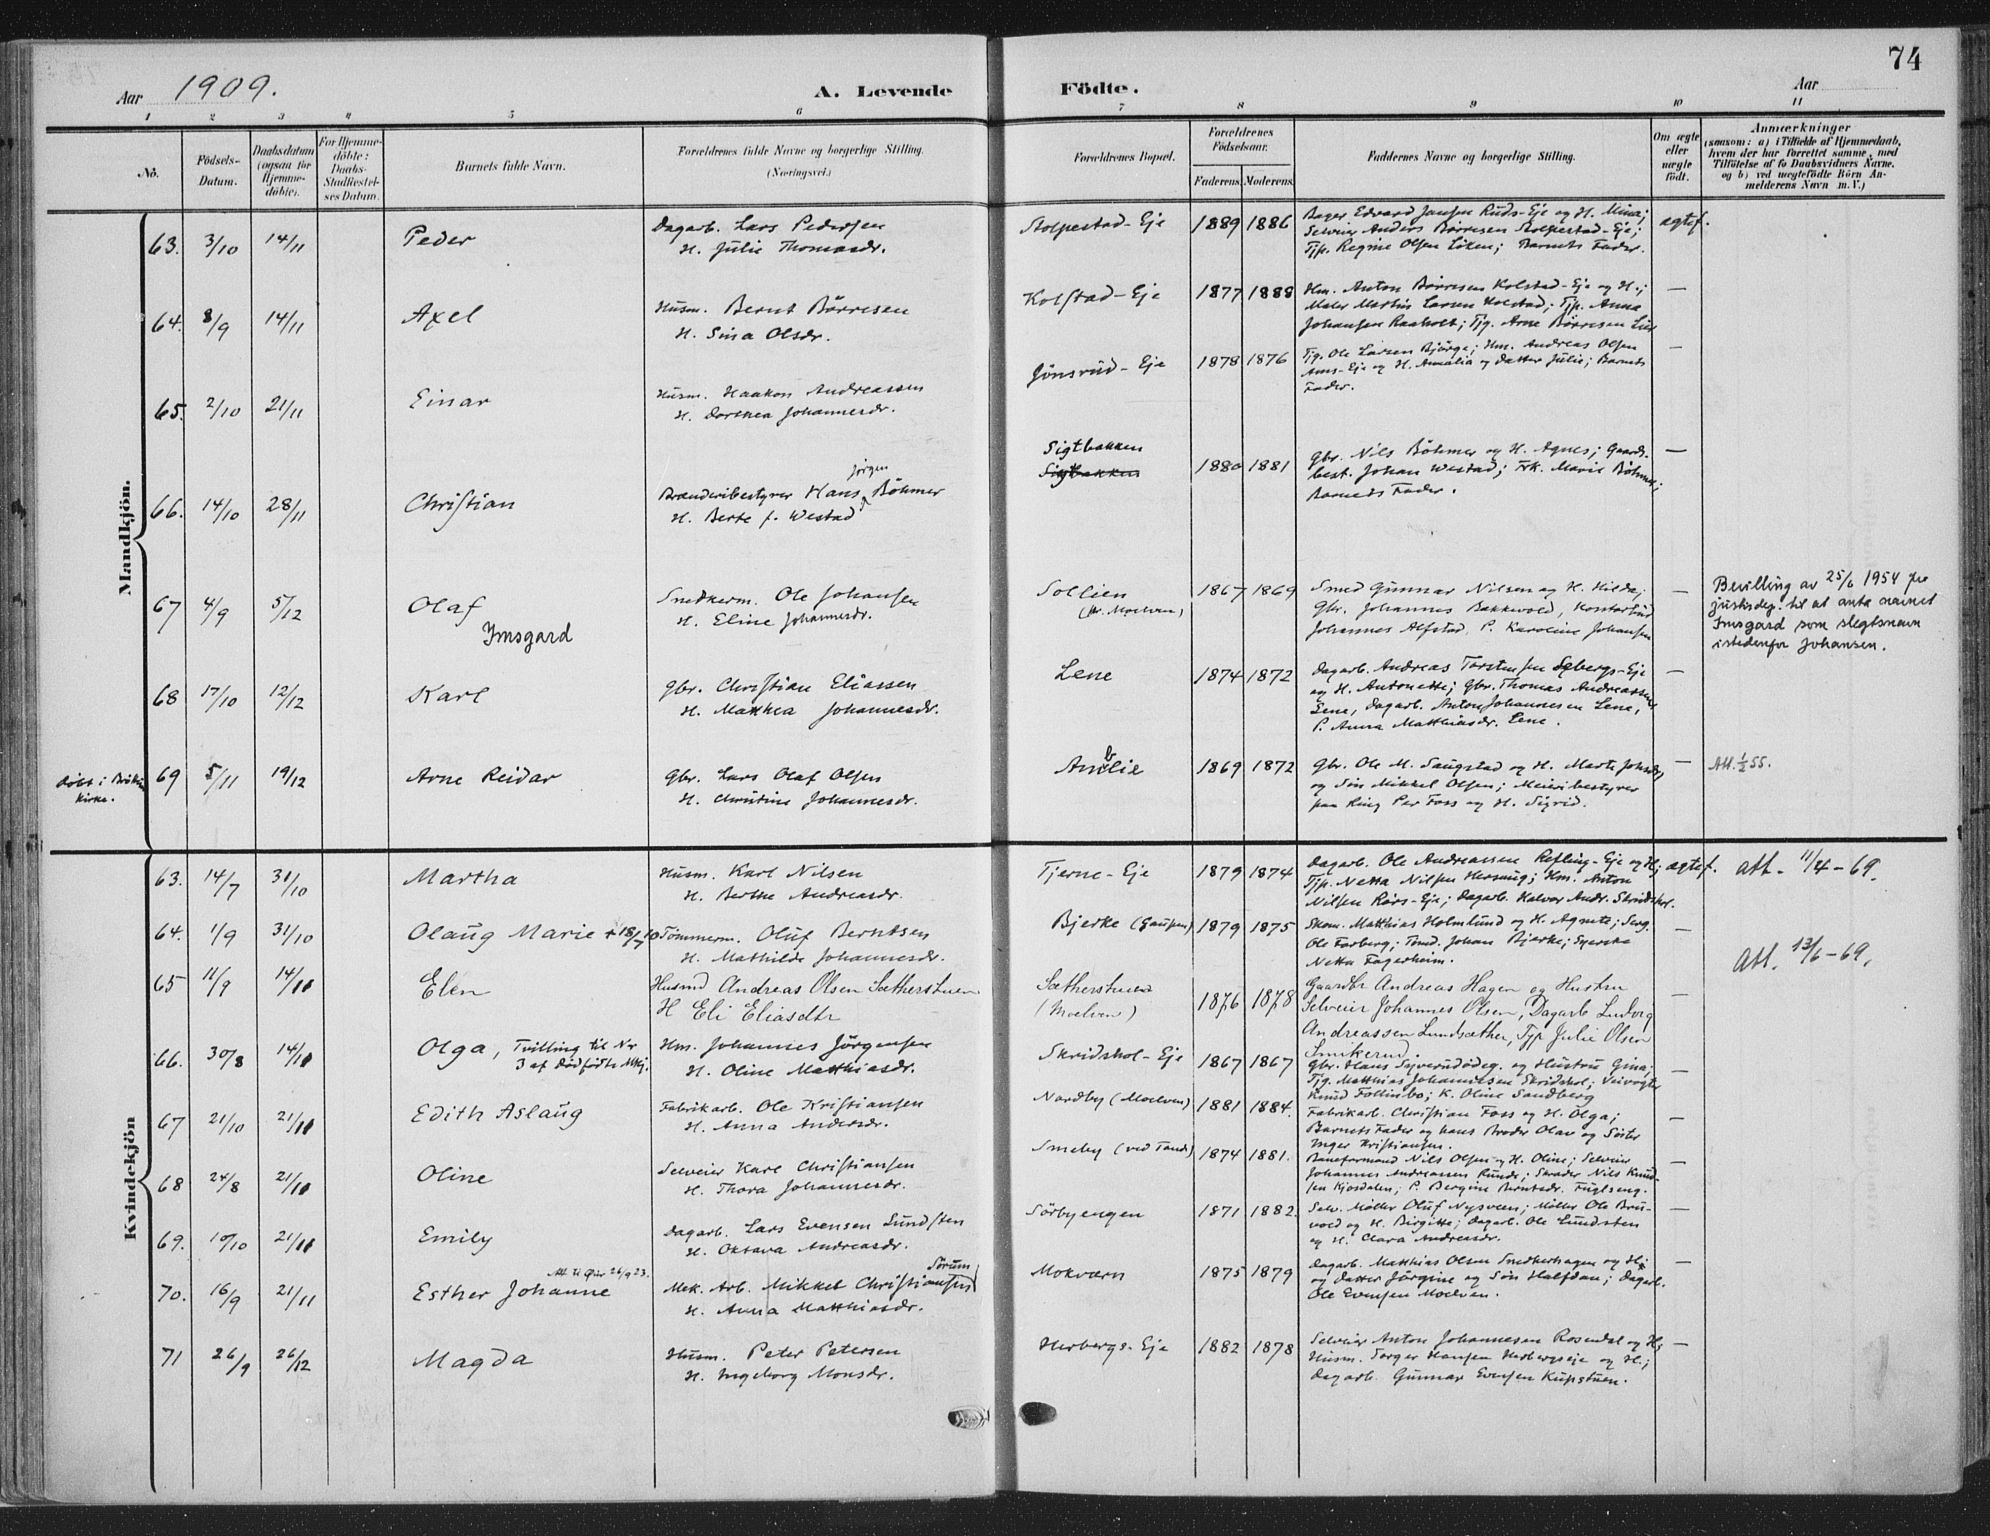 74
Aar 1909. A. Levende Födte. Aar
1 2 3 4 5 6 7 8 9 10 11
No.
Födsels-Datum.
Daabsdatum (ogsaa for Hjemme-döbte).
For Hjemme-döbte: Daabs-Stadfæstel-ses Datum.
Barnets fulde Navn.
Forældrenes fulde Navne og borgerlige Stilling. (Næringsvei.)
Forældrenes Bopæl.
Forældrenes Födselsaar.
Faderens. Moderens.
Faddernes Navne og borgerlige Stilling.
Om ægte eller uægte födt.
Anmærkninger
(saasom: a) i Tilfælde af Hjemmedaab, hvem der har forrettet samme, med Tilföielse af to Daabsvidners Navne. og b) ved uægtefödte Börn Anmelderens Navn m. V.)
Mandkjön.
63. 3/10 14/11 Peder
Dagarb. Lars Pedersen
H. Julie Thomasdr.
Stolpestad-Eje 1889 1886
Bager Edvard Jensen Ruds-Eje og H. Mina;
Selveier Anders Børresen Stolpestad-Eje;
Tjp. Regine Olsen Löken; Barnets Fader.
ægtef.
64. 8/9 14/11 Axel
Husm. Bernt Børresen
H. Sina Olsdr.
Kolstad-Eje 1877 1888
Hm. Anton Børresen Kolstad-Eje og H.;
Maler Martin Larsen Kolstad; Tjp. Anna
Johansen Raaholt; Tjg. Arne Børresen Lier
—
65. 2/10 21/11 Einar
Husm. Haakon Andreassen
H. Dorthea Johannesdr.
Jønsrud-Eje 1878 1876
Tjg. Ole Larsen Bjørge; Hm. Andreas Olsen
Ams-Eje og H. Amalia og datter Julie; Barnets
Fader.
—
66. 14/10 28/11 Christian
Brænderibestyrer Hans Jørgen Böhmer
H. Berte f. Westad
Sigtbakken
Sigtbakken
1880 1881
Gbr. Nils Böhmer og H. Agnes; Gaards-
best. Johan Westad; Frk. Marie Böhmer;
Barnets Fader.
—
67 4/9 5/12 Olaf
Imsgard
Snedkerm. Ole Johansen
H. Eline Johannesdr.
Sollien
(pr. Moelven)
1867 1869
Smed Gunnar Nilsen og H. Hilda;
Gbr. Johannes Bakkevold, Kontorbud
Johannes Alfstad, P. Karoline Johansen
—
Bevilling av 25/6 1954 fra
justisdep. til at anta navnet
Imsgard som slegtsnavn
istedenfor Johansen.
68 17/10 12/12 Karl
Gbr. Christian Eliassen
H. Mathea Johannesdr.
Lene 1874 1872
Dagarb. Andreas Torstensen Sebergs-Eje
og H. Antonette; Gbr. Thomas Andreassen
Lene, Dagarb. Anton Johannesen Lene,
P. Anna Matthiasdr. Lene.
—
Döbt i Brøttum
Kirke.
69 5/11 19/12 Arne Reidar
Gbr. Lars Olaf Olsen
H. Christine Johannesdr.
Amblie 1869 1872
Gbr. Ole M. Saugstad og H. Marte Johsdr.
og Søn Mikkel Olsen; Meieribestyrer
paa Ring Per Foss og H. Sigrid.
—
Att. 1/2 55.
Kvindekjön
63. 14/7 31/10 Martha
Husm. Karl Nilsen
H. Berthe Andreasdr.
Tjerne-Eje 1879 1874
Dagarb. Ole Andreassen Refling-Eje og H;
Tjp. Netta Nilsen Hersoug; Hm. Anton
Nilsen Rørs-Eje; Dagarb. Halvor Andr. Skridshol.
ægtef.
att. 11/4-69.
64. 1/9 31/10 Olaug Marie + 18/7 10
Tømmerm. Oluf Berntsen
H. Mathilde Johannesdr.
Bjerke (Gaupen) 1879 1875
Skom. Matthias Holmlund og H. Agnete; Serg.
Ole Farberg; Tømd. Johan Bjerke; Syerske
Netta Fagerheim.
—
65 11/9 14/11 Elen
Husmd Andreas Olsen Sætherstuen
H Eli Eliasdtr
Sætherstuen
(Moelven)
1876 1878
Gaardbr Andreas Hagen og Hustru
Selveier Johannes Olsen, Dagarb Ludvig
Andreassen Lundsæther, Tjp Julie Olsen
Smikerud.
—
Att. 13/6-69.
66. 30/8 14/11 Olga, Tvilling til Nr
3 af Dödfødte Mkj.
Hm. Johannes Jørgensen
H. Oline Matthiasdr.
Skridshol-Eje 1867 1867
Gbr. Hans Syverudødeg. og Hustru Gina;
Tjg. Matthias Johannesen Skridshol; Veivogter
Knud Follinbo; K. Oline Sandberg
—
67 21/10 21/11 Edith Aslaug
Fabrikarb. Ole Kristiansen
H. Anna Andersdr.
Nordby (Moelven) 1881 1884.
Fabrikarb. Christian Foss og H. Olga;
Barnets Fader og hans Broder Olav og Söster
Inger Kristiansen.
—
68 24/8 21/11 Oline
Selveier Karl Christiansen
H. Thora Johannesdr.
Smeby (ved Tande) 1874 1881.
Baneformand Nils Olsen og H. Oline; Selveier
Johannes Andreassen Runde; Skræder Nils Knud-
sen Kjosdalen; P. Bergine Berntsdr. Fuglseng.
—
69. 10/10 21/11 Emily
Dagarb. Lars Evensen Lundsten
H. Oktava Andreasdr.
Sörbyengen 1871 1882.
Selv. Møller Oluf Nysveen; Møller Ole Bru-
vold og H. Birgitte; Dagarb. Ole Lundsten
og H. Clara Andreasdr.
—
70. 16/9 21/11 Esther Johanne
Att. til 26/9 23.
Mek. Arb. Mikkel Christiansen Sørum
H. Anna Matthiasdr.
Mokværn 1875 1879
Dagarb. Matthias Olsen Snedkerhagen og H;
og Datter Jörgine og Søn Halfdan; Dagarb.
Ole Evensen Moelven.
—
71 26/9 26/12 Magda
Husm. Peter Petersen
H. Ingeborg Monsdr.
Herbergs-Eje 1882 1878
Selveier Anton Johannesen Rosendal og H;
Husm. Torger Hansen Herbergseje og H.;
Dagarb. Gunnar Evensen Kupstuen.
—